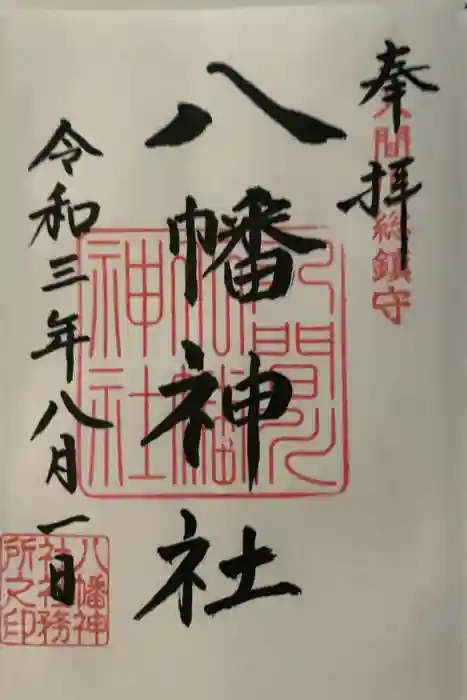 奉拝
入間総鎮守
八幡神社
令和三年八月一日
八幡神
社社務
所之印